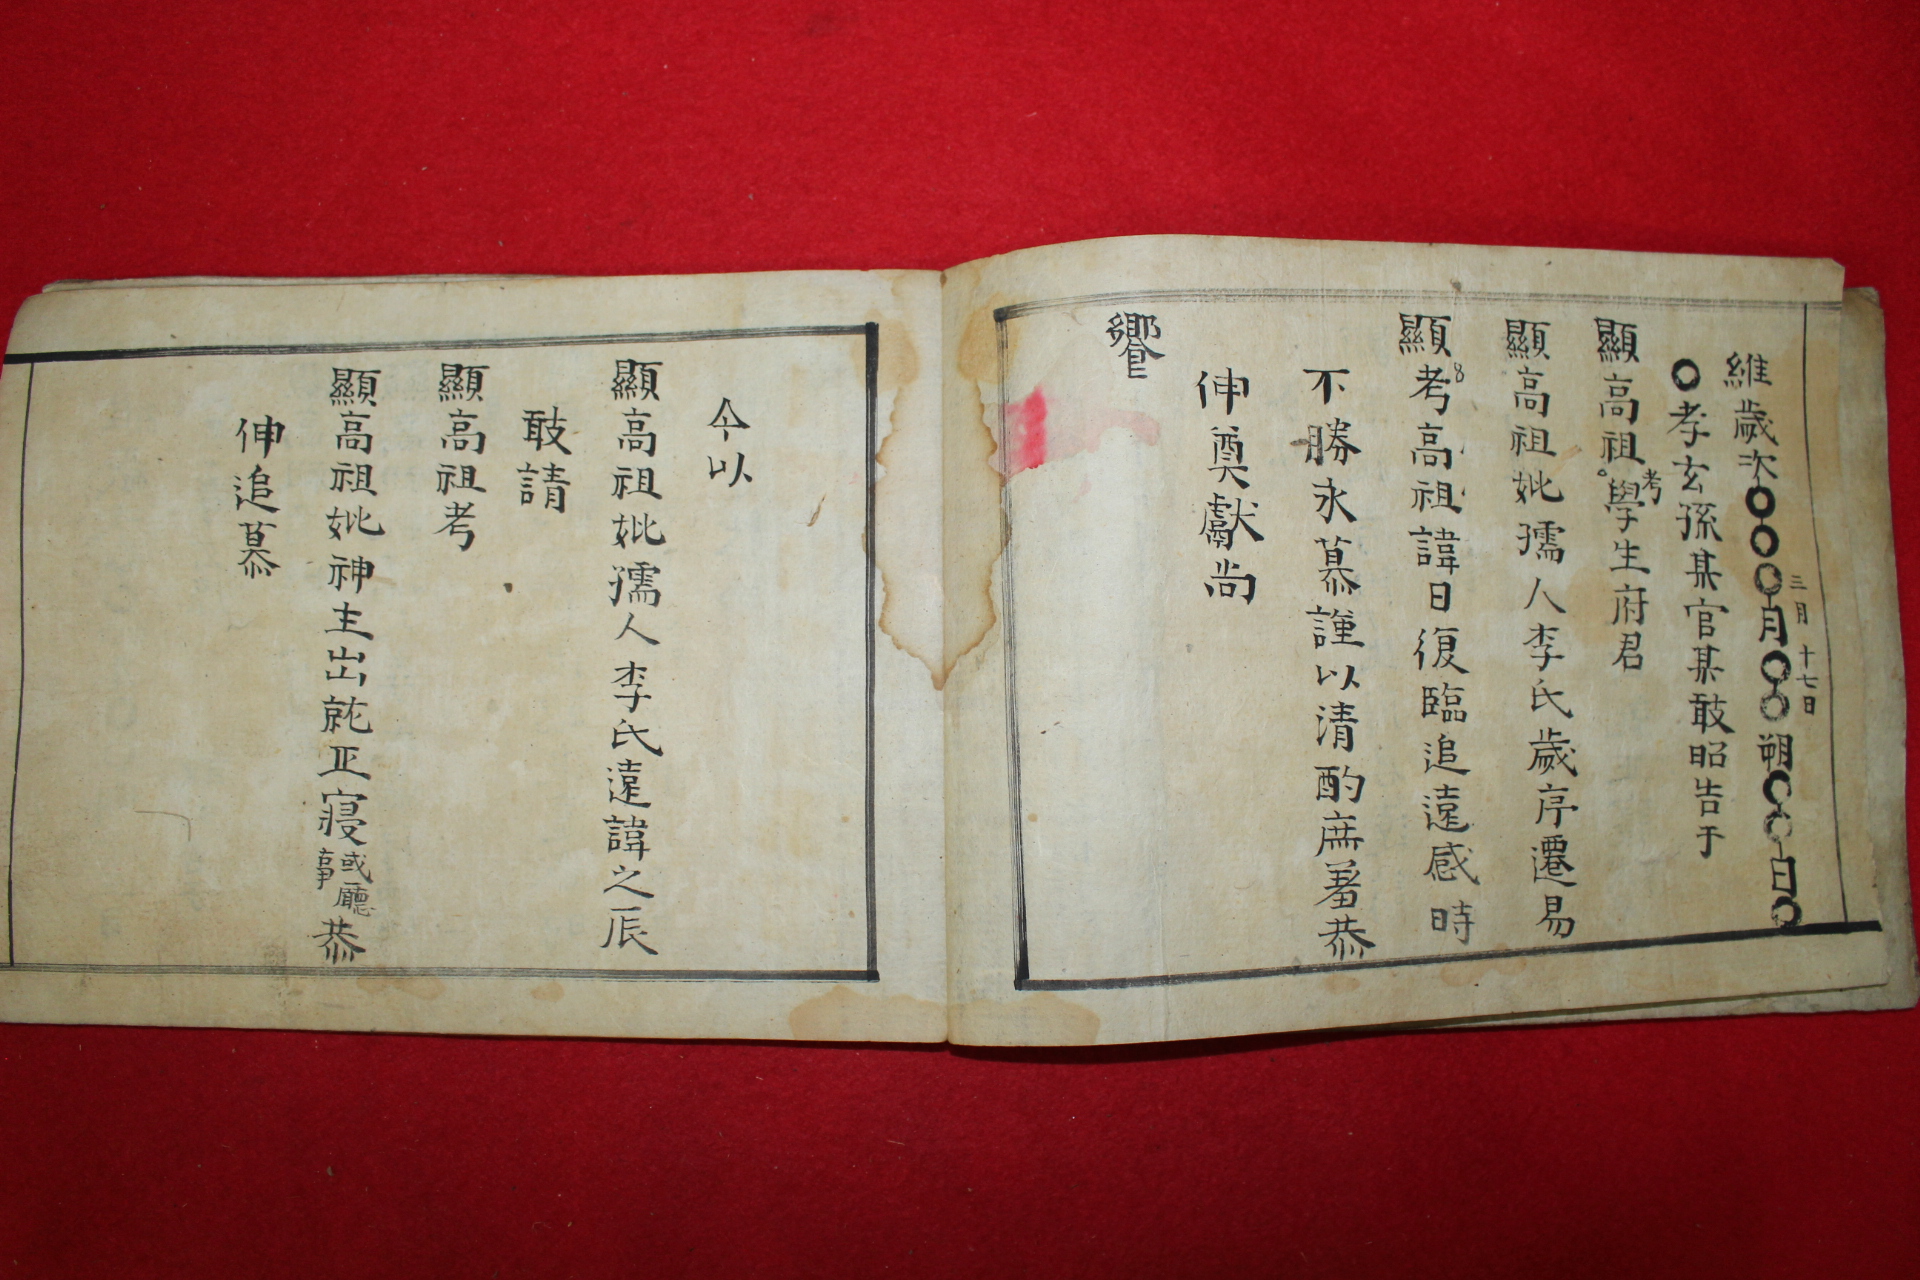 維歲次○○○月○○朔○○日○
三月 十七日
○孝玄孫某官某敢昭告于
顯高祖考學生府君
顯高祖妣孺人李氏歲序遷易
顯考高祖諱日復臨追遠感時
不勝永慕謹以清酌庶羞恭
伸奠獻尚
饗
今以
顯高祖妣孺人李氏遠諱之辰
敢請
顯高祖考
顯高祖妣神主出就正寢或廳事恭
伸追慕